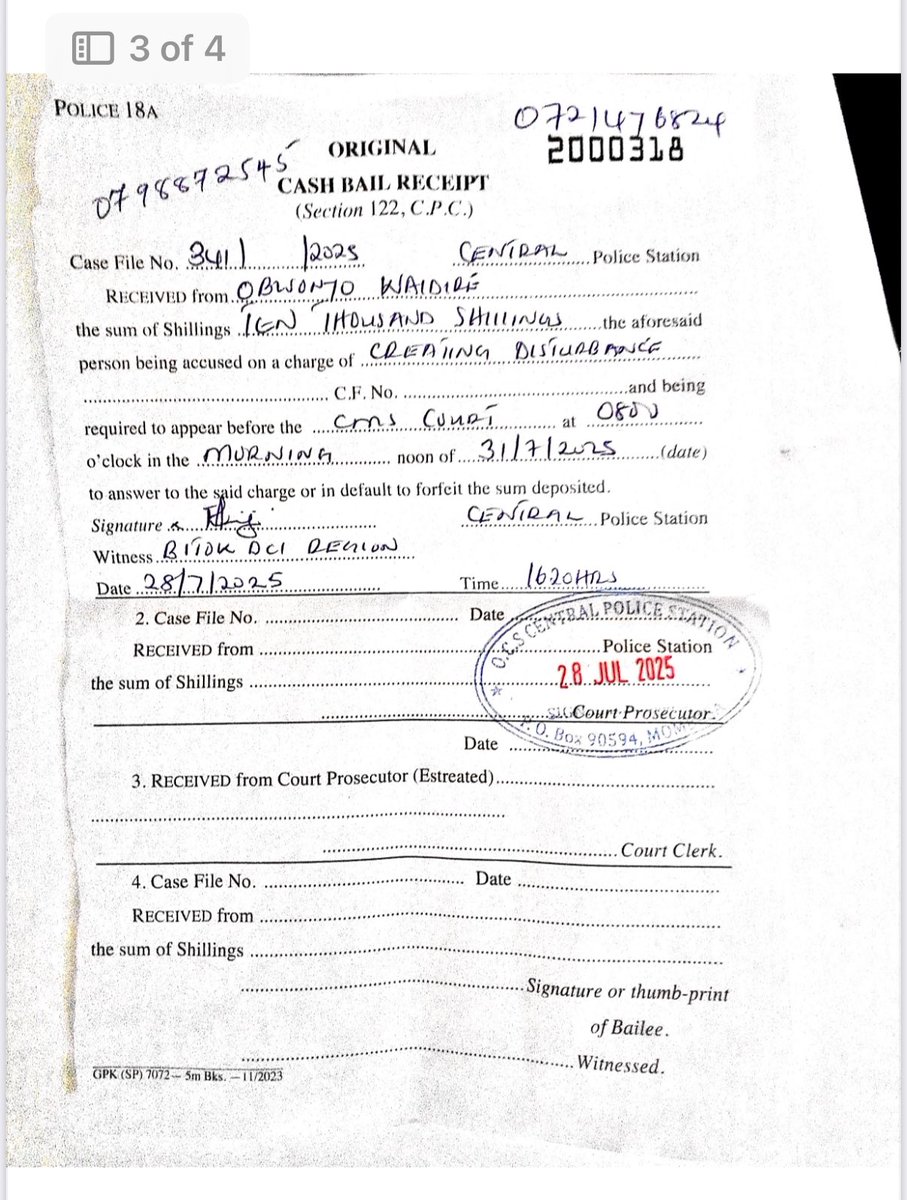 3 of 4
POLICE 18A
0721476824
2000318
0798872545
ORIGINAL
CASH BAIL RECEIPT
(Section 122, C.P.C.)
Case File No. 341/ /2025 CENTRAL Police Station
RECEIVED from OBWONYO WAIDIRE
the sum of Shillings TEN THOUSAND SHILLINGS the aforesaid
person being accused on a charge of CREATING DISTURBANCE
C.F. No. and being
required to appear before the CMS COURT at 0800
o'clock in the MORNING noon of 31/7/2025 (date)
to answer to the said charge or in default to forfeit the sum deposited.
Signature CENTRAL Police Station
Witness BITOK DCI REGION
Date 28/7/2025 Time 1620HRS
2. Case File No. Date
RECEIVED from Police Station
the sum of Shillings
Court Prosecutor.
Date
O.C.S CENTRAL POLICE STATION
28 JUL 2025
P. O. Box 90594,
3. RECEIVED from Court Prosecutor (Estreated)
Court Clerk.
4. Case File No. Date
RECEIVED from
the sum of Shillings
Signature or thumb-print
of Bailee.
Witnessed.
GPK (SP) 7072 — 5m Bks. — 11/2023